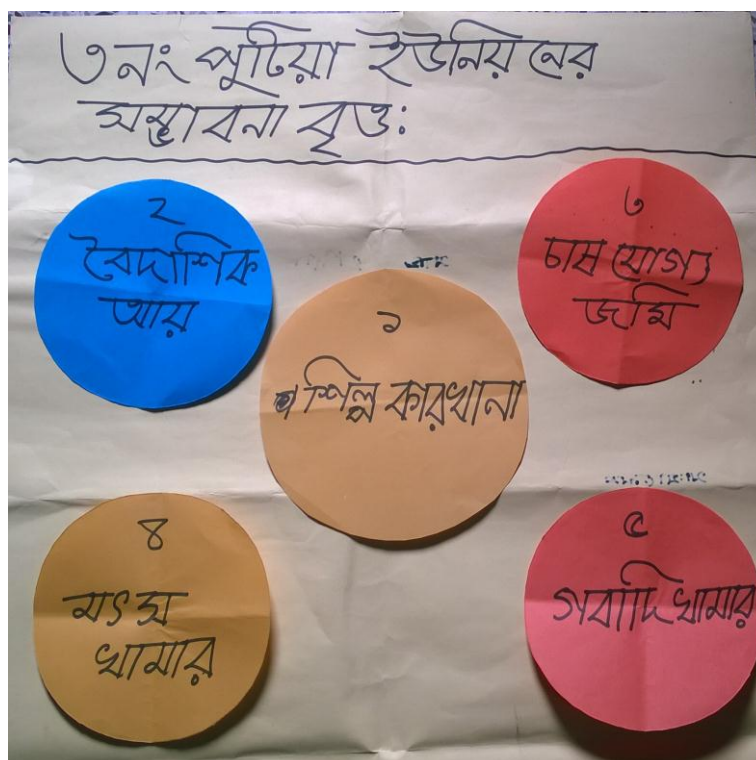 ৩নং পুটিয়া ইউনিয়নের
সম্ভাবনা বৃত্ত:
২
বৈদাশিক
আয়
৩
চাষ যোগ্য
জমি
১
শিল্প কারখানা
৪
মৎস
খামার
৫
গবাদি খামার